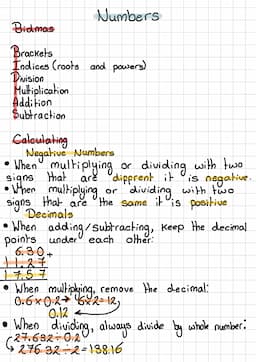 Numbers
Bidmas
Brackets
Indices (roots and powers)
Division
Multiplication
Addition
Subtraction
Calculating
Negative Numbers
• When multiplying or dividing with two
signs that are different it is negative.
• When multiplying or dividing with two
signs that are the same it is positive
Decimals
• When adding/subtracting, keep the decimal
points under each other:
6.30+
1.27
7.57
• When multiplying, remove the decimal:
0.6×0.2→ 6×2=12,
0.12
• When dividing, always divide by whole number:
27.632÷0.2
276.32÷2=138.16